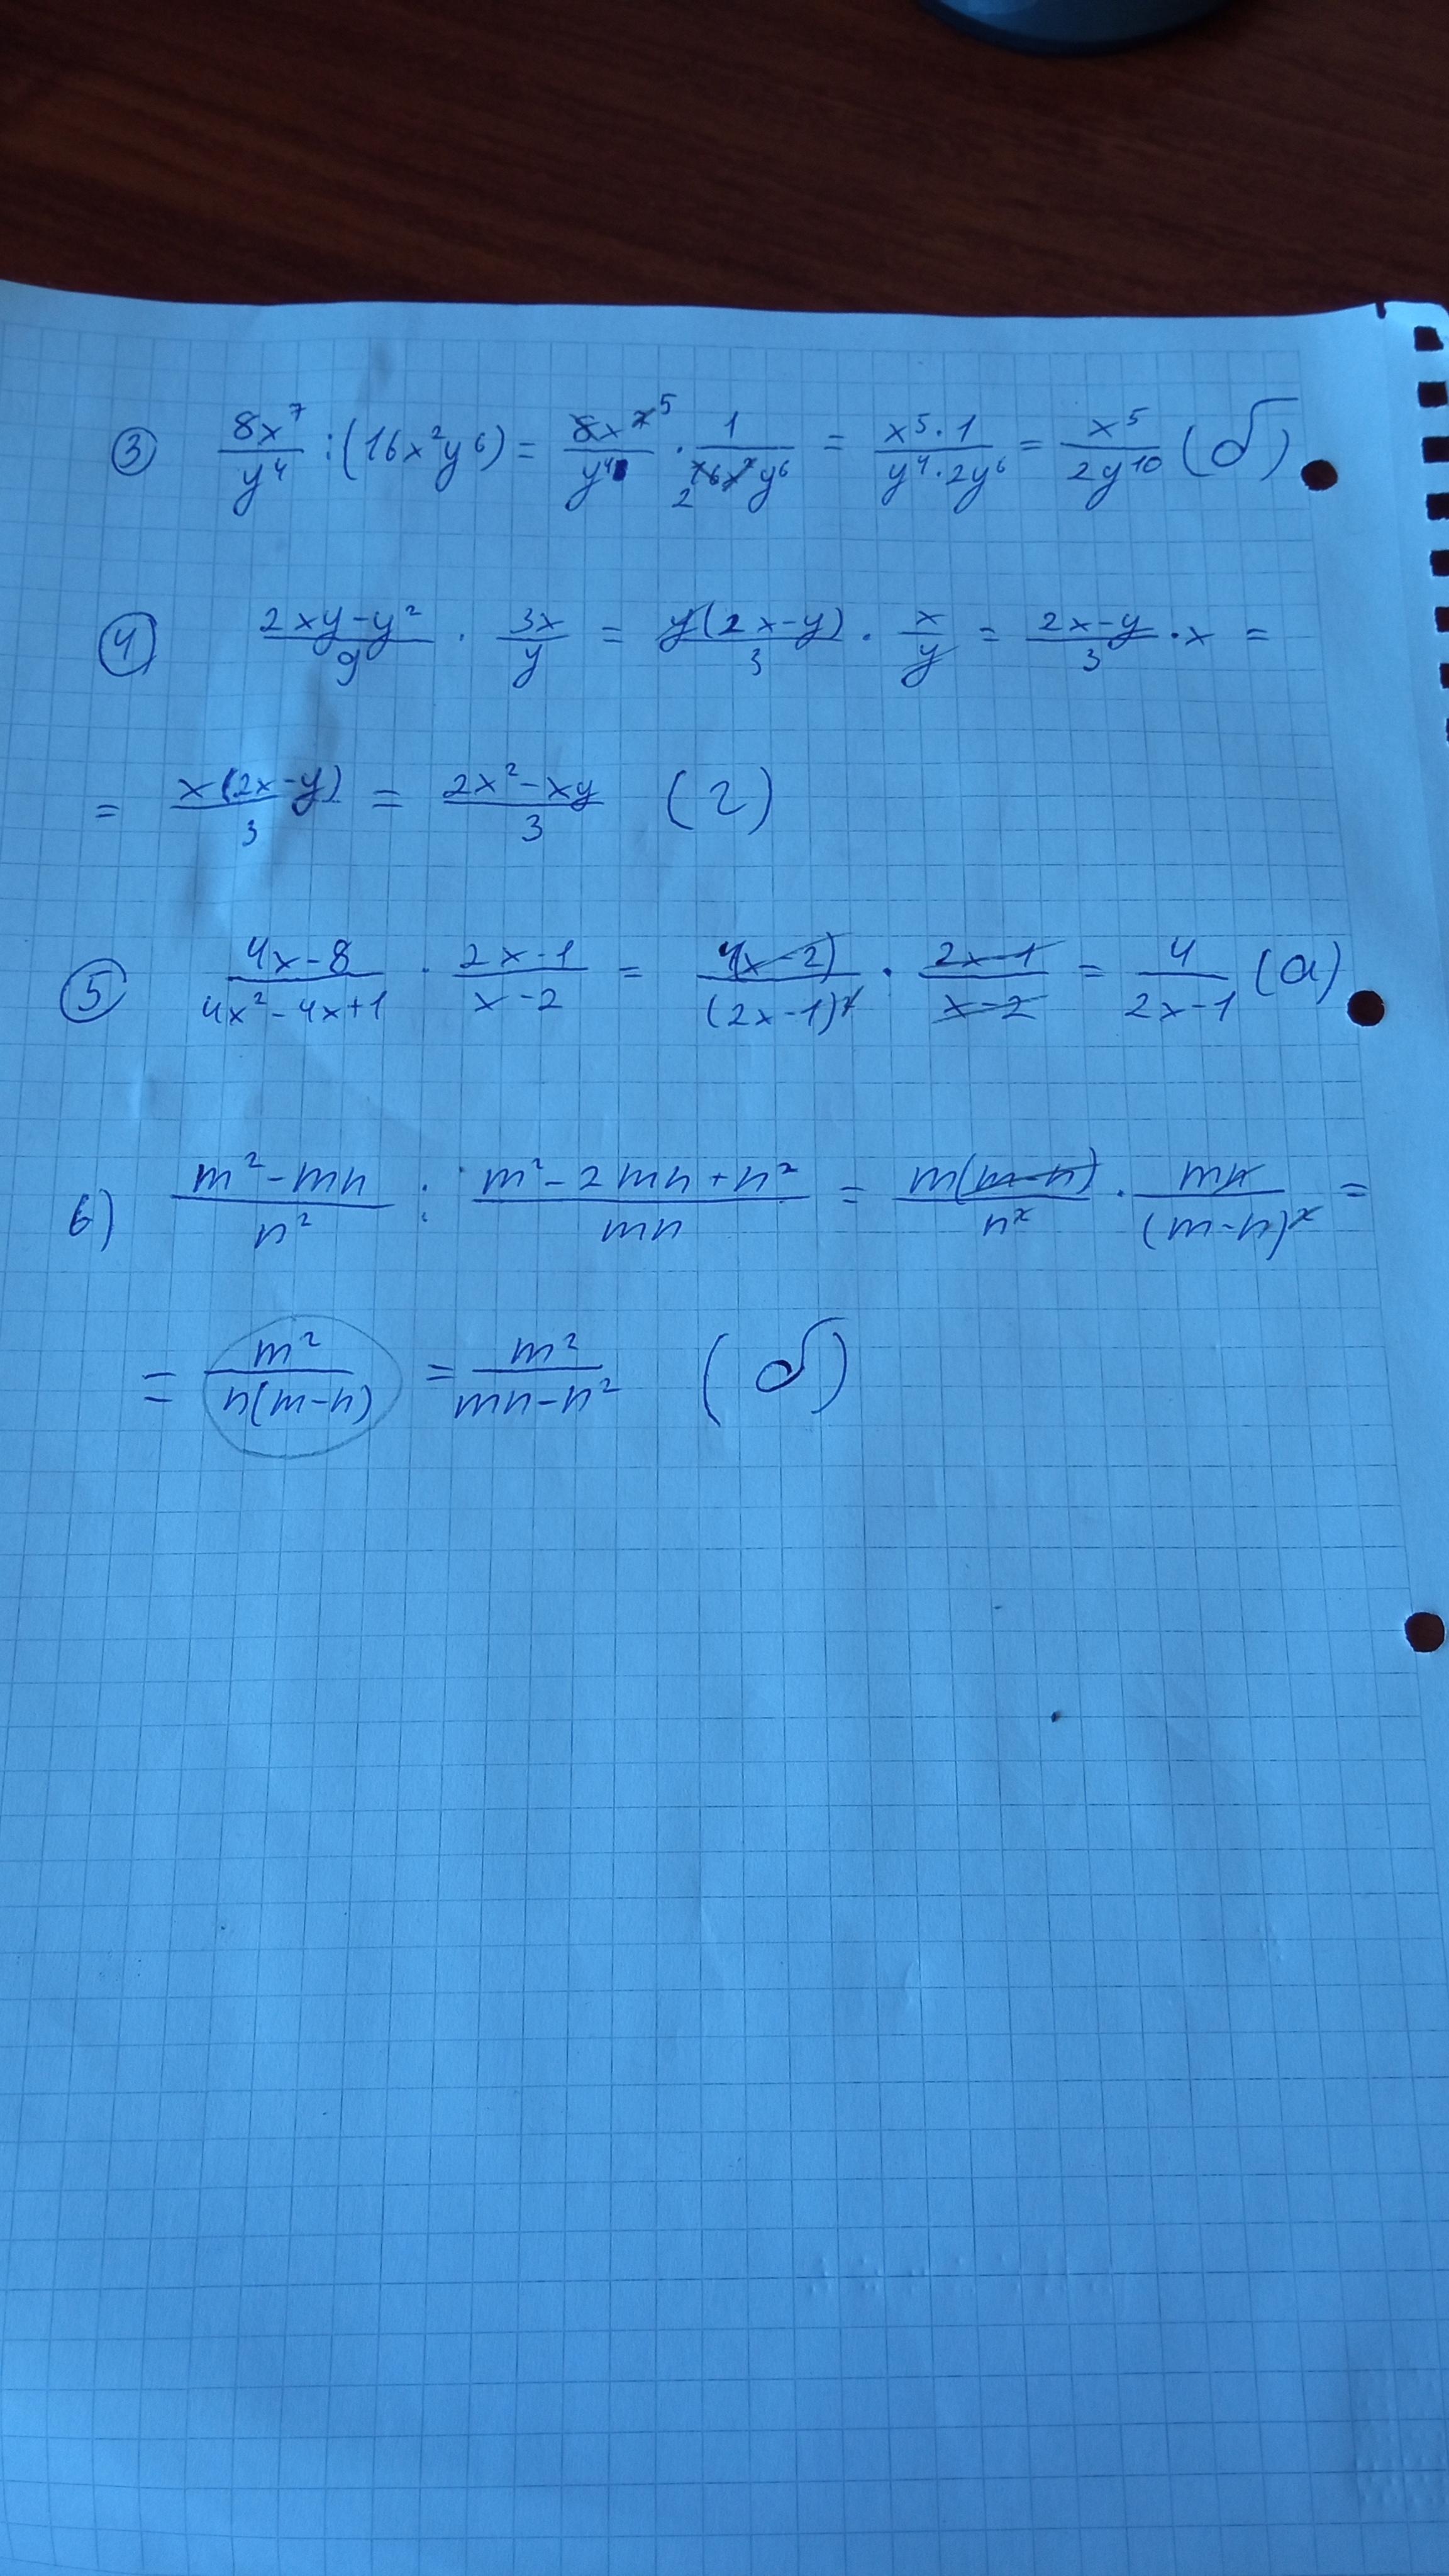 ③ 8x⁷/y⁴ : (16x²y⁶) = 8x⁷ ⁵/y⁴ · 1/₂16x²y⁶ = x⁵·1/y⁴·2y⁶ = x⁵/2y¹⁰ (б)
④ 2xy-y²/9 · 3x/y = y(2x-y)/3 · x/y = 2x-y/3 · x =
= x(2x-y)/3 = 2x²-xy/3 (г)
⑤ 4x-8/4x²-4x+1 · 2x-1/x-2 = 4(x-2)/(2x-1)² · 2x-1/x-2 = 4/2x-1 (а)
6) m²-mn/n² : m²-2mn+n²/mn = m(m-n)/n² · mn/(m-n)² =
= m²/n(m-n) = m²/mn-n² (б)